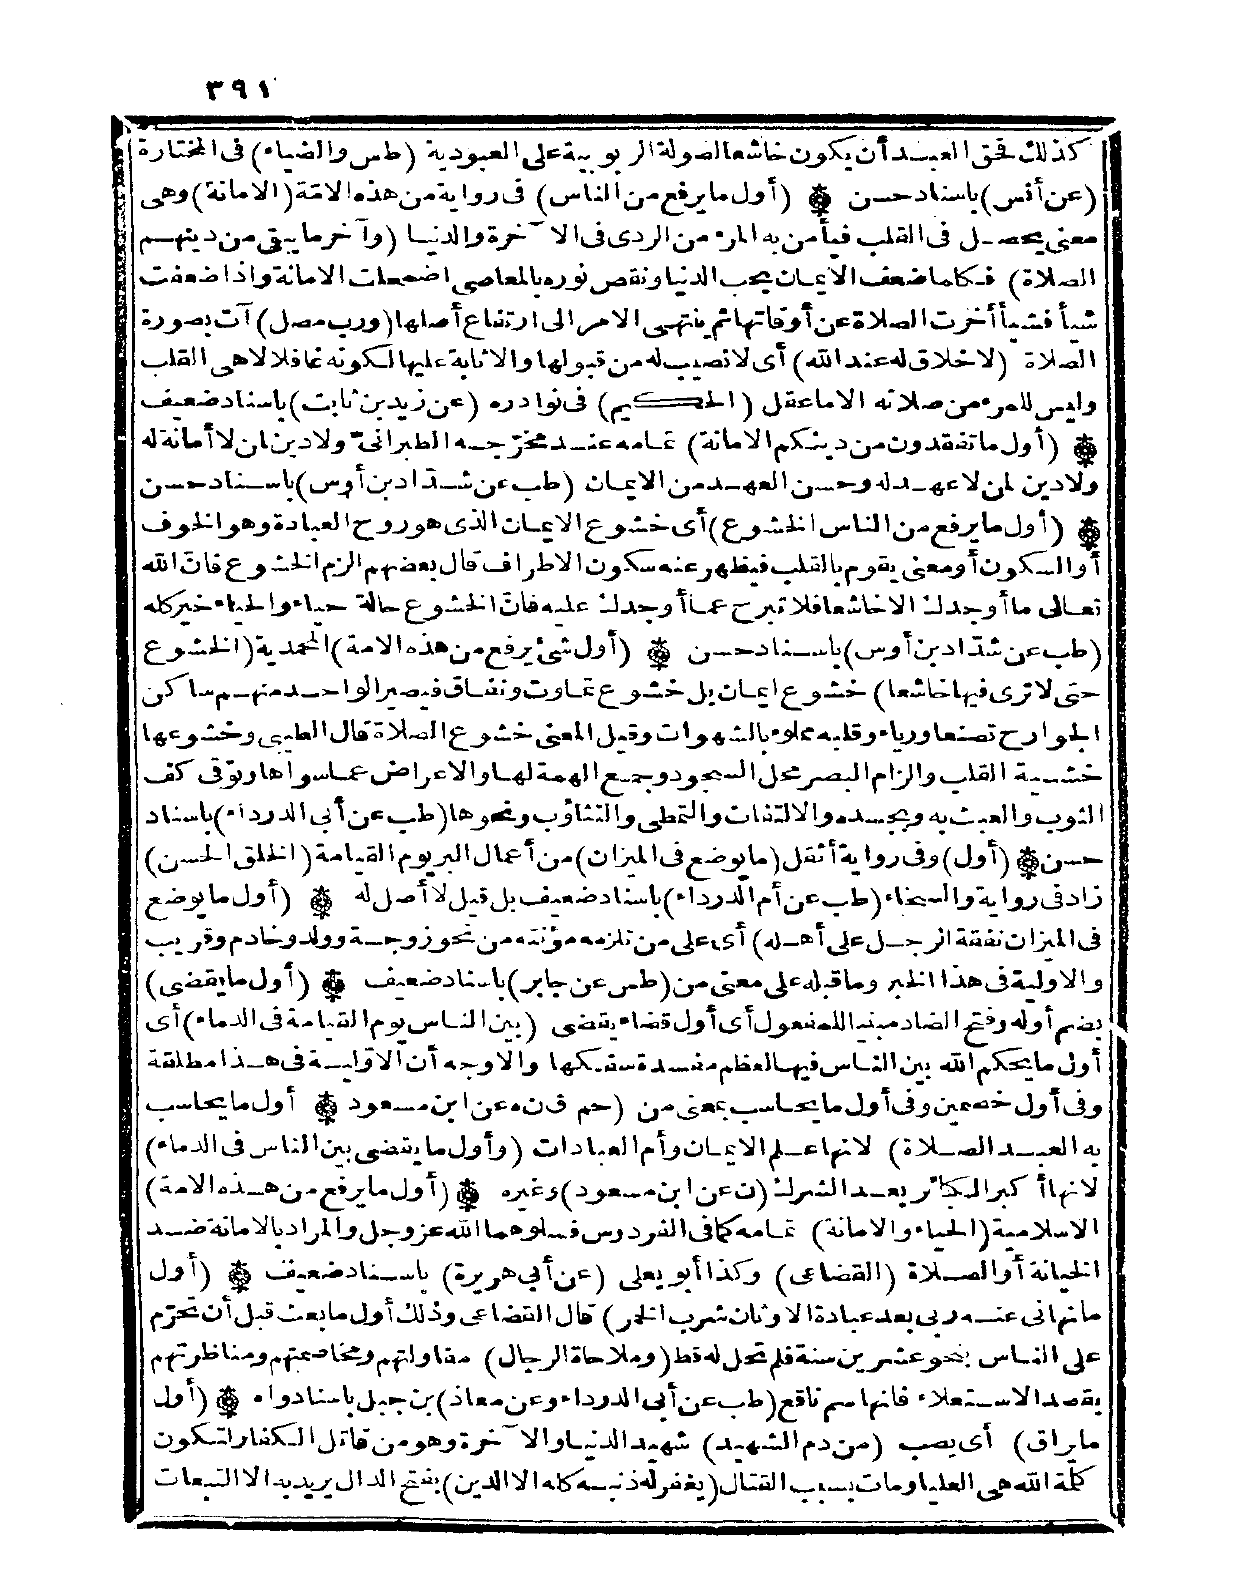 ٣٩١
كذلك فحق العبد أن يكون خاشعا لصولة الربوبية على العبودية (طس والضياء) فى المختارة
(عن أنس) باسناد حسن ۞ (أول ما يرفع من الناس) فى رواية من هذه الامّة (الامانة) وهى
معنى يحصل فى القلب فيأمن به المرء من الردى فى الآخرة والدنيا (وآخر ما يبقى من دينهم
الصلاة) فكلما ضعف الايمان بحب الدنيا ونقص نوره بالمعاصى اضمحلت الامانة واذا ضعفت
شيأ فشيأ أخرت الصلاة عن أوقاتها ثم ينتهى الامر الى ارتفاع أصلها (ورب مصل) آت بصورة
الصلاة (لا خلاق له عند الله) أى لا نصيب له من قبولها والاثابة عليها لكونه غافلا لاهى القلب
وليس للمرء من صلاته الا ما عقل (الحكيم) فى نوادره (عن زيد بن ثابت) باسناد ضعيف
۞ (أول ما تفقدون من دينكم الامانة) تمامه عند مخرّجه الطبرانىّ ولا دين لمن لا أمانة له
ولا دين لمن لا عهد له وحسن العهد من الايمان (طب عن شدّاد بن أوس) باسناد حسن
۞ (أول ما يرفع من الناس الخشوع) أى خشوع الايمان الذى هو روح العبادة وهو الخوف
أو السكون أو معنى يقوم بالقلب فيظهر عنه سكون الاطراف قال بعضهم الزم الخشوع فانّ الله
تعالى ما أوجدك الا خاشعا فلا تبرح عما أوجدك عليه فانّ الخشوع حالة حياء والحياء خير كله
(طب عن شدّاد بن أوس) باسناد حسن ۞ (أول شئ يرفع من هذه الامة) المحمدية (الخشوع
حتى لا ترى فيها خاشعا) خشوع ايمان بل خشوع تماوت ونفاق فيصير الواحد منهم ساكن
الجوارح تصنعا ورياء وقلبه مملوء بالشهوات وقيل المعنى خشوع الصلاة قال الطيبى وخشوعها
خشية القلب والزام البصر محل السجود وجمع الهمة لها والاعراض عما سواها وتوقى كف
الثوب والعبث به وبجسده والالتفات والتمطى والتثاؤب ونحوها (طب عن أبى الدرداء) باسناد
حسن ۞ (أول) وفى رواية أثقل (ما يوضع فى الميزان) من أعمال البر يوم القيامة (الخلق الحسن)
زاد فى رواية والسخاء (طب عن أم الدرداء) باسناد ضعيف بل قيل لا أصل له ۞ (أول ما يوضع
فى الميزان نفقة الرجل على أهله) أى على من تلزمه مؤنته من نحو زوجة وولد وخادم وقريب
والاولية فى هذا الخبر وما قبله على معنى من (طس عن جابر) باسناد ضعيف ۞ (أول ما يقضى)
بضم أوله وفتح الضاد مبنيا للمفعول أى أول قضاء يقضى (بين الناس يوم القيامة فى الدماء) أى
أول ما يحكم الله بين الناس فيها لعظم مفسدة سفكها والاوجه أن الاوّلية فى هذا مطلقة
وفى أول خصمين وفى أول ما يحاسب بمعنى من (حم ق ن ه عن ابن مسعود ۞ أول ما يحاسب
به العبد الصلاة) لانها علم الايمان وأم العبادات (وأول ما يقضى بين الناس فى الدماء)
لانها أكبر الكبائر بعد الشرك (ن عن ابن مسعود) وغيره ۞ (أول ما يرفع من هذه الامة)
الاسلامية (الحياء والامانة) تمامه كما فى الفردوس فسلوهما الله عز وجل والمراد بالامانة ضد
الخيانة أو الصلاة (القضاعى) وكذا أبو يعلى (عن أبى هريرة) باسناد ضعيف ۞ (أول
ما نهانى عنه ربى بعد عبادة الاوثان شرب الخمر) قال القضاعى وذلك أول ما بعث قبل أن تحرّم
على الناس بنحو عشرين سنة فلم تحل له قط (وملاحاة الرجال) مقاولتهم ومخاصمتهم ومناظرتهم
بقصد الاستعلاء فانها سم ناقع (طب عن أبى الدرداء وعن معاذ) بن جبل باسناد واه ۞ (أول
ما يراق) أى يصب (من دم الشهيد) شهيد الدنيا والآخرة وهو من قاتل الكفار لتكون
كلمة الله هى العليا ومات بسبب القتال (يغفر له ذنبه كله الا الدين) بفتح الدال يريد به الا التبعات